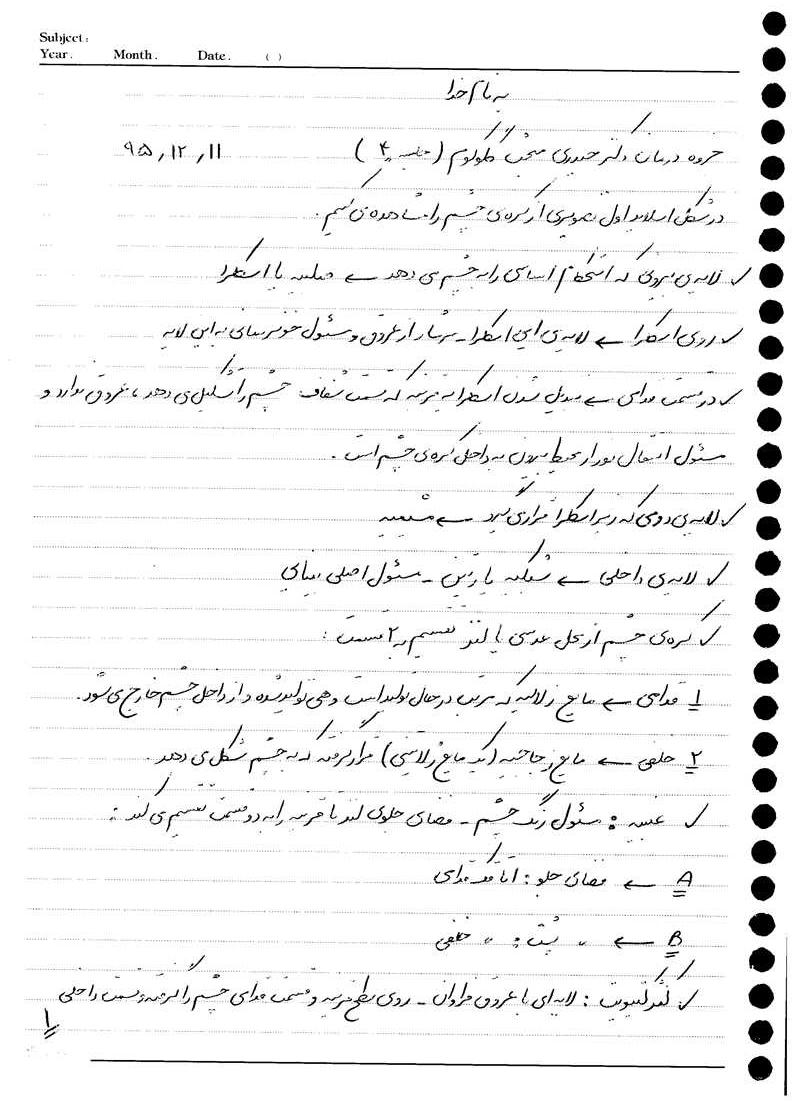 Subject:
Year. Month. Date. ( )
به نام خدا
جزوه درمان دکتر حیدری مبحث گلوکوم (جلسه ۴) ۹۵,۱۲,۱۱
در شکل اسلاید اول تصویری از کره ی چشم را مشاهده می کنیم.
✓ لایه ی بیرونی که استحکام اساسی را به چشم می دهد ← صلبیه یا اسکلرا
✓ روی اسکلرا ← لایه ی اپی اسکلرا - سرشار از عروق و مسئول خونرسانی به این لایه
✓ در قسمت قدامی ← تبدیل شدن اسکلرا به قرنیه که قسمت شفاف چشم را تشکیل می دهد، عروق ندارد و
مسئول انتقال نور از محیط بیرون به داخل کره ی چشم است.
✓ لایه ی دومی که زیر اسکلرا قرار می گیرد ← مشیمیه
✓ لایه ی داخلی ← شبکیه یا رتین - مسئول اصلی بینایی
✓ کره ی چشم از محل عدسی یا لنز تقسیم به ۲ قسمت:
1 قدامی ← مایع زلالیه که مرتب در حال تولید است و هی تولید شده و از داخل چشم خارج می شود.
2 خلفی ← مایع زجاجیه (یک مایع ژلاتینی) قرار گرفته که به چشم شکل می دهد.
✓ عنبیه: مسئول رنگ چشم - فضای جلوی لنز تا قرنیه را به دو قسمت تقسیم می کند:
A ← فضای جلو: اتاقک قدامی
B ← 〃 پشت: 〃 خلفی
✓ کنژنکتیویت: لایه ای با عروق فراوان - روی سطح قرنیه و قسمت قدامی چشم را گرفته و قسمت داخلی
1